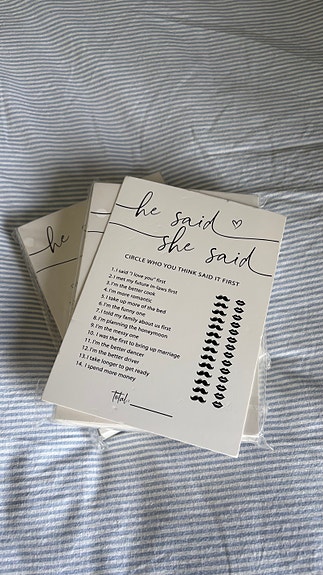 he
he said
she said
CIRCLE WHO YOU THINK SAID IT FIRST
1. I said "I love you" first
2. I met my future in laws first
3. I'm the better cook
4. I'm more romantic
5. I take up more of the bed
6. I'm the funny one
7. I told my family about us first
8. I'm planning the honeymoon
9. I'm the messy one
10. I was the first to bring up marriage
11. I'm the better dancer
12. I'm the better driver
13. I take longer to get ready
14. I spend more money
Total: